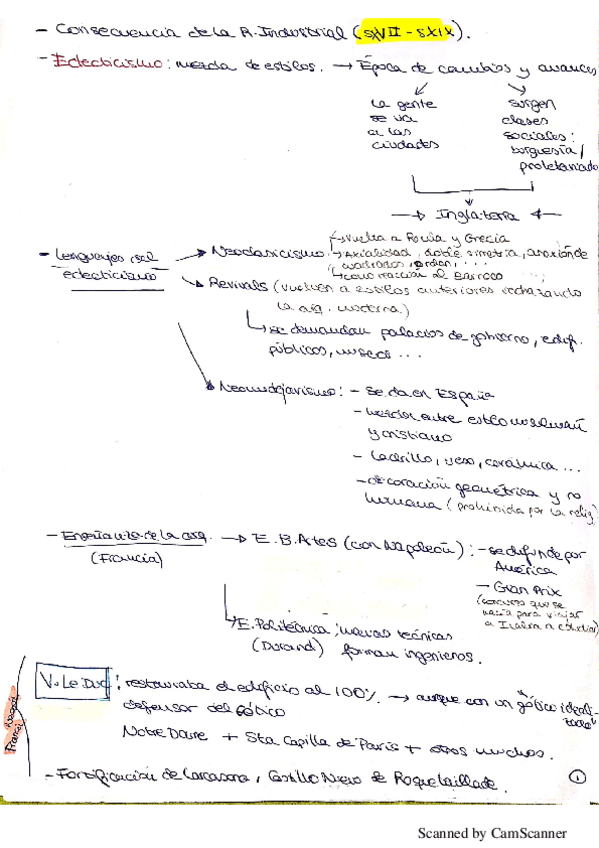 - Consecuencia de la R. Industrial (SXVII - SXIX).
- Eclecticismo: mezcla de estilos. → Época de cambios y avances
la gente se va a las ciudades
surgen clases sociales: burguesía/ proletariado
→ Inglaterra ←
- Lenguajes del eclecticismo
→ Neoclasicismo
→ vuelta a Roma y Grecia
→ Axialidad, doble simetría, de
cuadrados, orden, ...
→ como reacción al Barroco
→ Revivals (vuelven a estilos anteriores rechazando
la arq. moderna.)
↳ se demandan palacios de gobierno, edif.
públicos, museos ...
→ Neomudejarismo: - Se da en España
- mezcla entre estilo musulmán
y cristiano
- ladrillo, yeso, cerámica ...
- decoración geométrica y no
humana (prohibida por la relig)
- Enseñanza de la arq. (Francia)
→ E. B. Artes (con Napoleón): - se difunde por
América
- Gran Prix
(concurso que se
hacía para viajar
a Italia a estudiar)
↳ E. Politécnica: nuevas técnicas
(Durand) forman ingenieros.
V. Le Duc: restauraba el edificio al 100% → aunque con un "gótico ideali-
zado"
defensor del gótico
Notre Dame + Sta Capilla de París + otros muchos.
- Fortificación de Carcasona, Castillo Nuevo de Roquetaillade.
1
Scanned by CamScanner